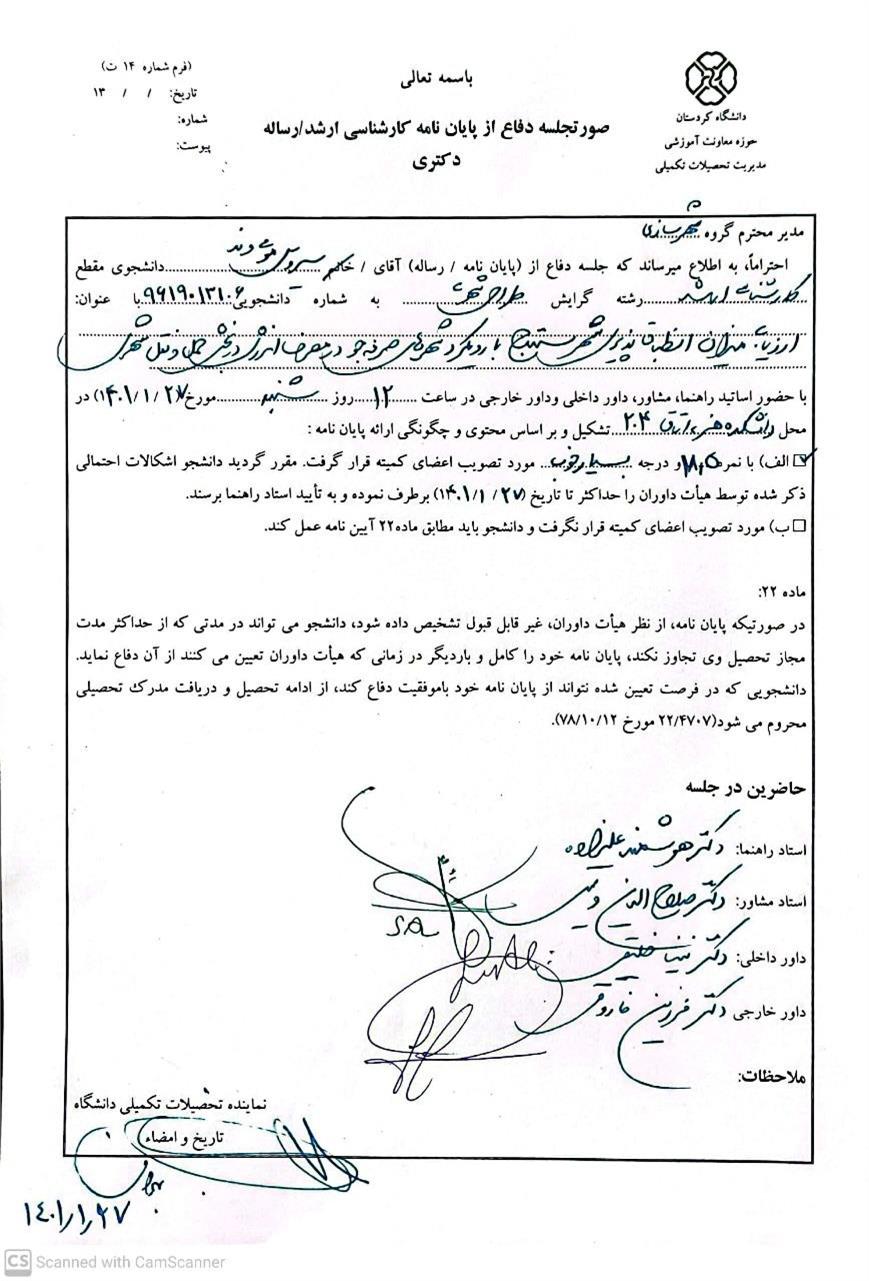 (فرم شماره ۱۴ ت)
تاریخ: / / ۱۳
شماره:
پیوست:
باسمه تعالی
صورتجلسه دفاع از پایان نامه کارشناسی ارشد/رساله
دکتری
دانشگاه کردستان
حوزه معاونت آموزشی
مدیریت تحصیلات تکمیلی
مدیر محترم گروه شهرسازی
احتراماً، به اطلاع میرساند که جلسه دفاع از (پایان نامه / رساله) آقای / خانم سیروس دانشجوی مقطع
کارشناسی ارشد رشته گرایش طراحی شهری به شماره دانشجویی ۹۶۱۹۰۱۳۱۰۶ با عنوان:
ارزیابی میزان انطباق پذیری شهر سنندج با رویکرد شهرهای صرفه جو در مصرف انرژی در بخش حمل و نقل شهری
با حضور اساتید راهنما، مشاور، داور داخلی وداور خارجی در ساعت ۱۲ روز شنبه مورخ(۱۴۰۱/۱/۲۷) در
محل دانشکده هنر، اتاق ۲۰۴ تشکیل و بر اساس محتوی و چگونگی ارائه پایان نامه :
الف) با نمره و درجه بسیار خوب مورد تصویب اعضای کمیته قرار گرفت. مقرر گردید دانشجو اشکالات احتمالی
ذکر شده توسط هیأت داوران را حداکثر تا تاریخ (۱۴۰۱/۱/۲۷) برطرف نموده و به تأیید استاد راهنما برسند.
ب) مورد تصویب اعضای کمیته قرار نگرفت و دانشجو باید مطابق ماده۲۲ آیین نامه عمل کند.
ماده ۲۲:
در صورتیکه پایان نامه، از نظر هیأت داوران، غیر قابل قبول تشخیص داده شود، دانشجو می تواند در مدتی که از حداکثر مدت
مجاز تحصیل وی تجاوز نکند، پایان نامه خود را کامل و باردیگر در زمانی که هیأت داوران تعیین می کنند از آن دفاع نماید.
دانشجویی که در فرصت تعیین شده نتواند از پایان نامه خود باموفقیت دفاع کند، از ادامه تحصیل و دریافت مدرک تحصیلی
محروم می شود(۲۲/۴۷۰۷ مورخ ۷۸/۱۰/۱۲).
حاضرین در جلسه
استاد راهنما: دکتر هوشمند علیزاده
استاد مشاور: دکتر صلاح الدین
داور داخلی: دکتر
داور خارجی دکتر فرزین
ملاحظات:
نماینده تحصیلات تکمیلی دانشگاه
تاریخ و امضاء
۱۴۰۱/۱/۲۷
CS Scanned with CamScanner